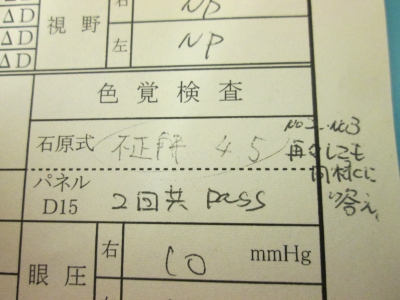 ΔD
右 NP
ΔD
視野
ΔD
左 NP
ΔD
色覚検査
石原式 不正解 45
No2-No3
再々しても
同様に
答え
パネル
D15
2回共 pass
眼圧 右 10 mmHg